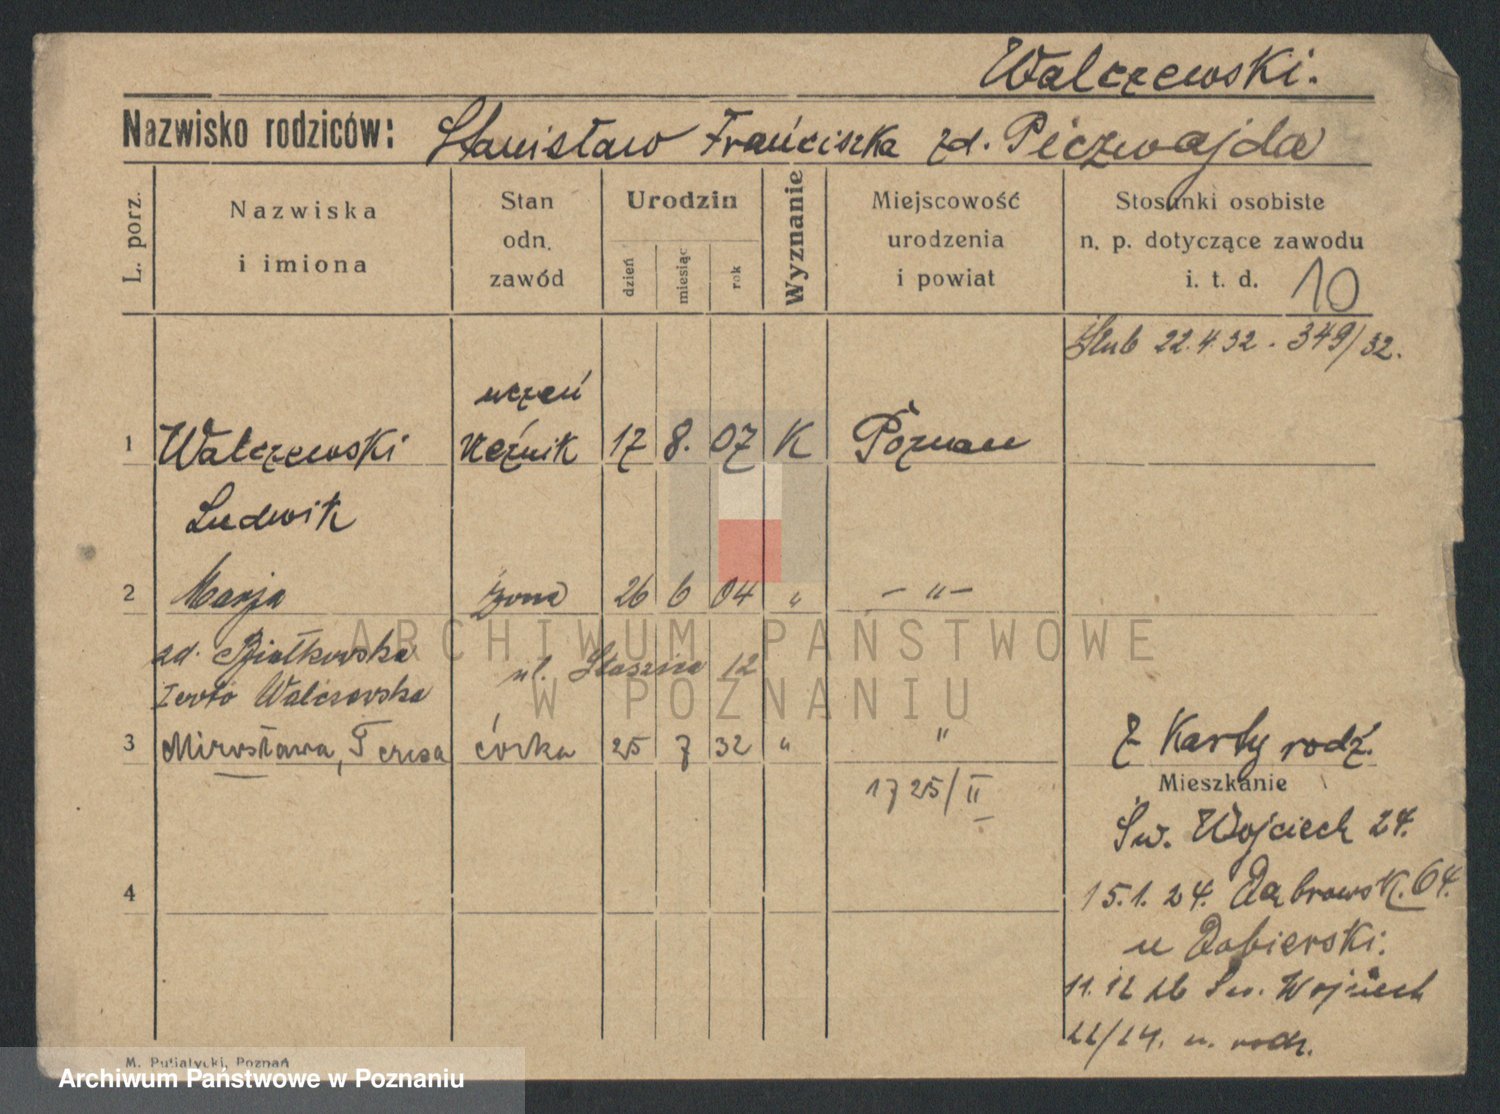 Walczewski.
Nazwisko rodziców: Stanisław Franciszka zd. Piczwajda
L. porz.
Nazwiska
i imiona
Stan
odn.
zawód
Urodzin
dzień
miesiąc
rok
Wyznanie
Miejscowość
urodzenia
i powiat
Stosunki osobiste
n. p. dotyczące zawodu
i. t. d. 10
Ślub 22.4.32 - 349/32.
uczeń
1 Walczewski 17 8. 07 K Poznań
Ludwik
2 Marja żona 26 6 04 " - " -
zd. Białkowska
ul. Staszica 12
1voto Walczewska
3 Mirosława, Teresa córka 25 7 32 " "
Z Karty rodz.
1725/II
Mieszkanie
Św. Wojciech 24.
15.1.24. Dąbrowsk. 64.
u Dobierski.
11.12 26 Św. Wojciech
22/24. u. rodz.
4
M. Putiatycki, Poznań
ARCHIWUM PAŃSTWOWE
W POZNANIU
Archiwum Państwowe w Poznaniu